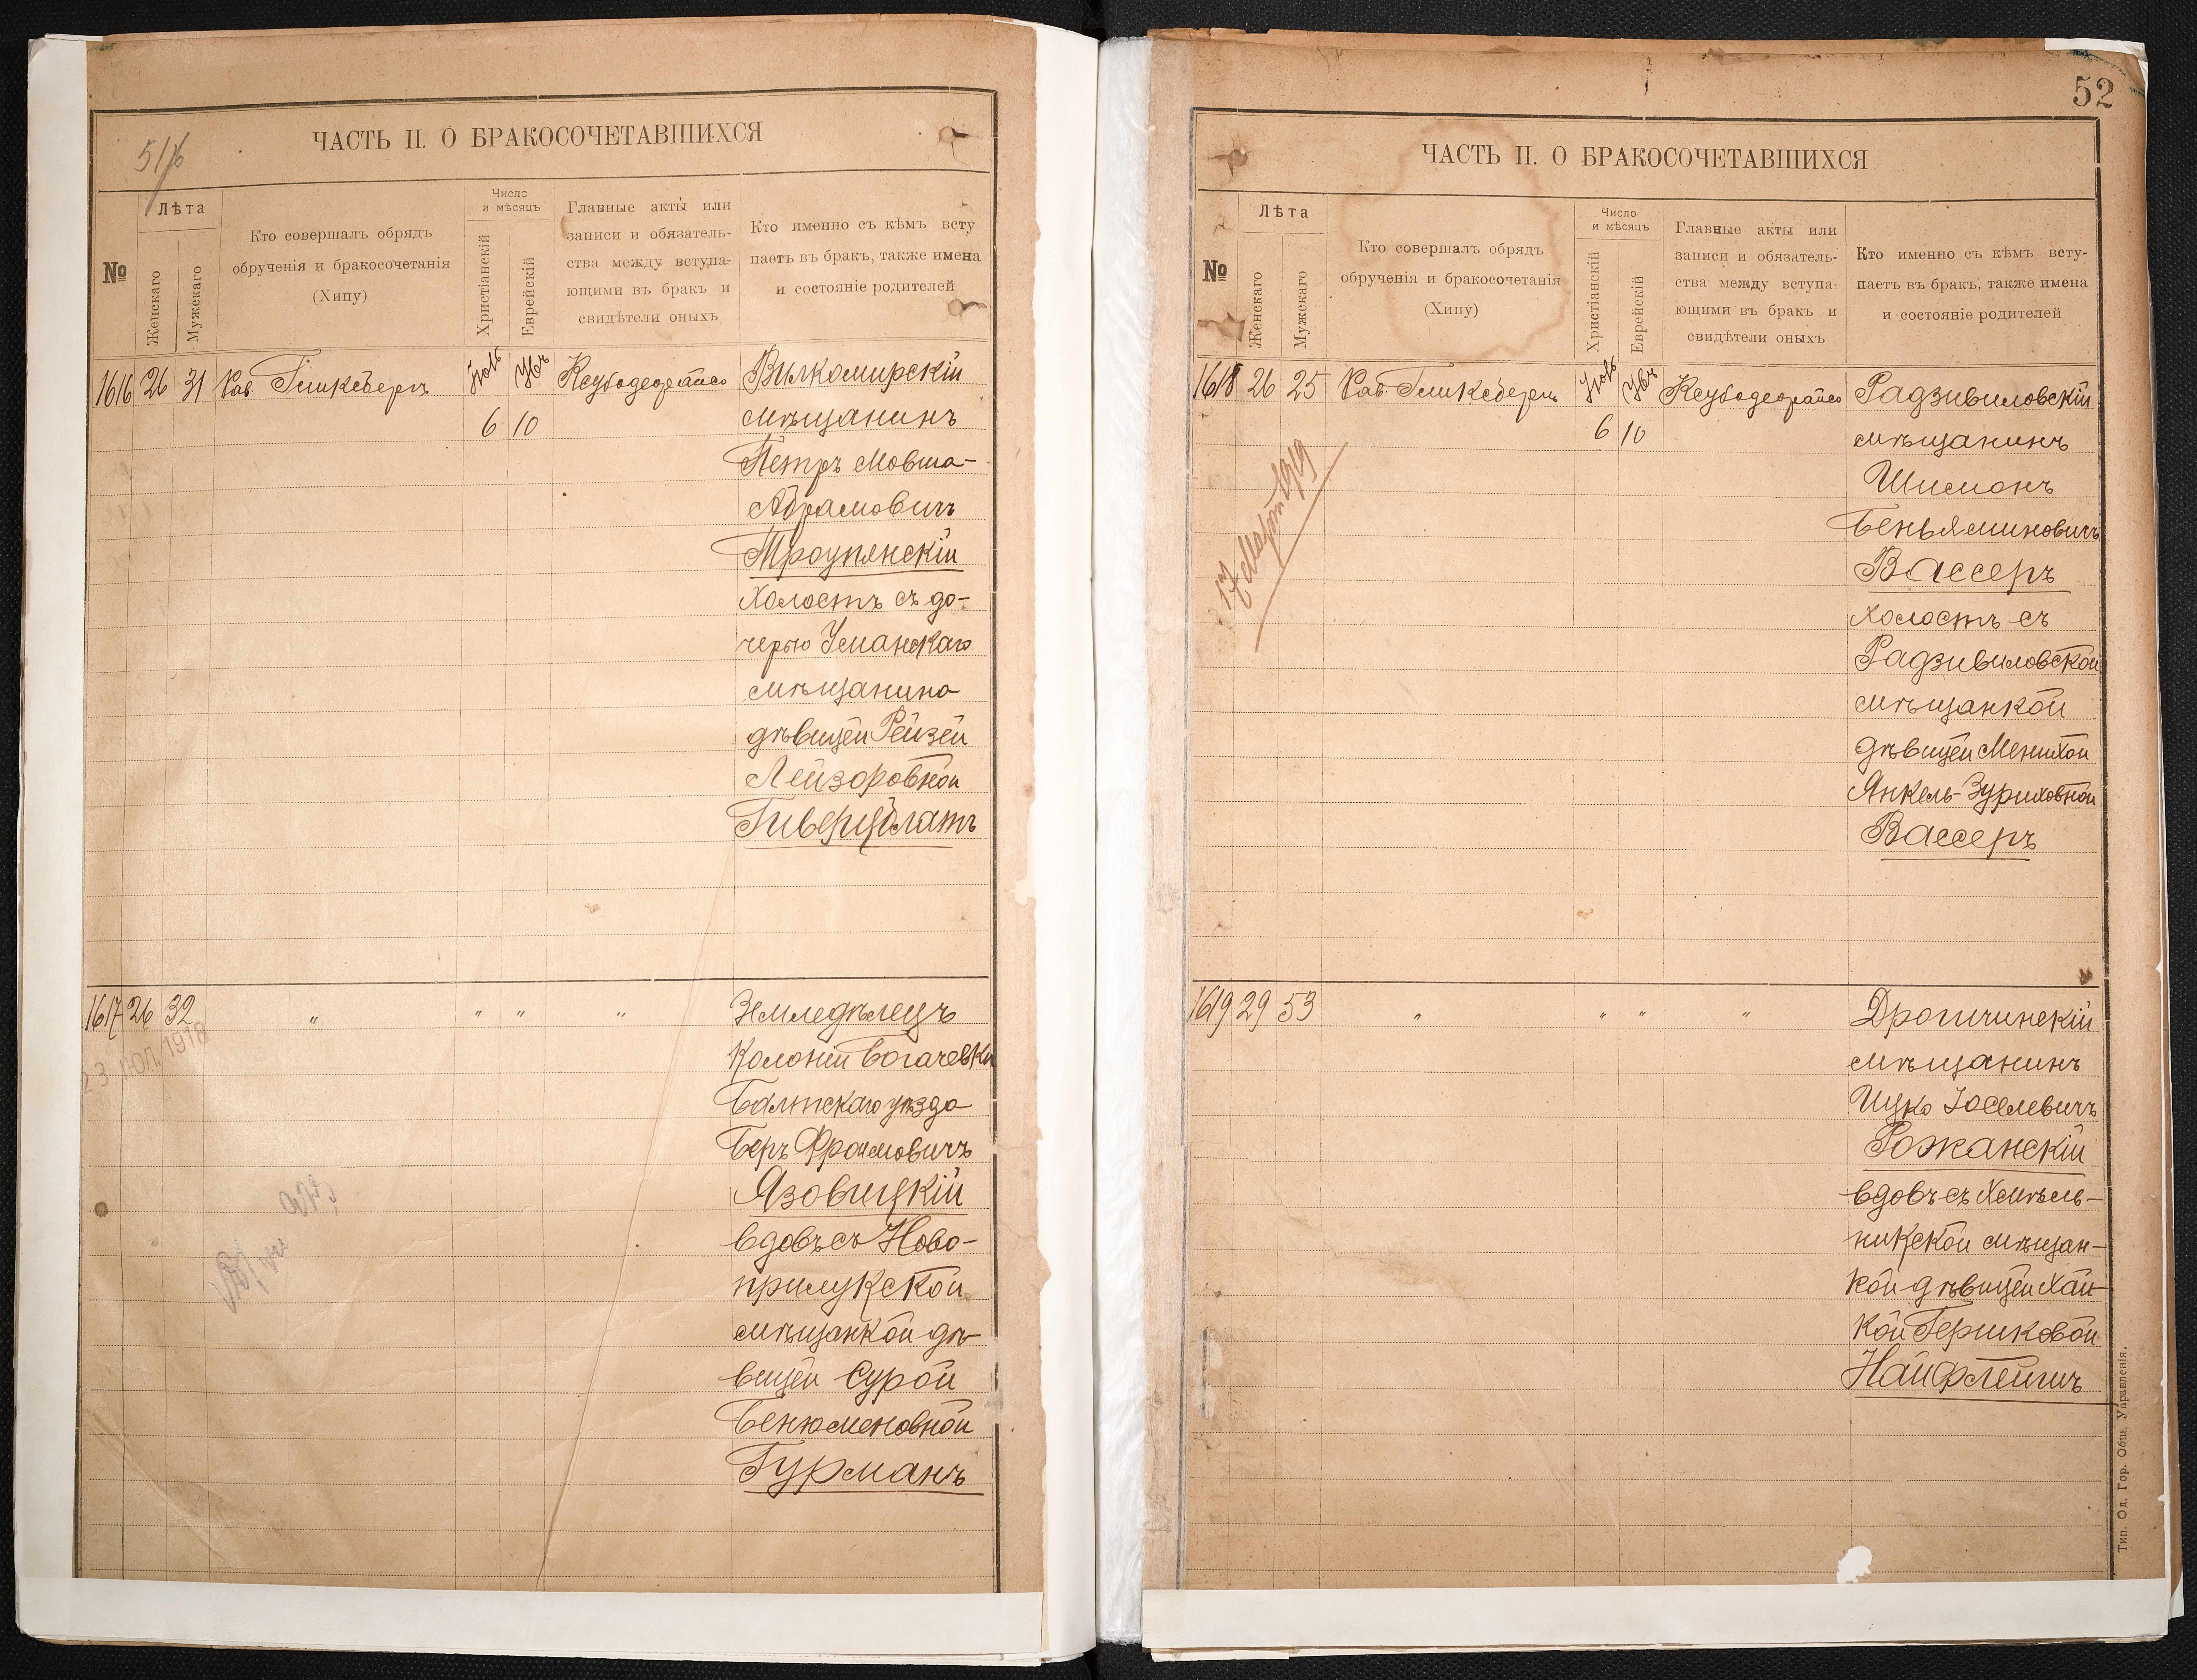 51/б
ЧАСТЬ II. О БРАКОСОЧЕТАВШИХСЯ
№
Лѣта
Женскаго
Мужескаго
Кто совершалъ обрядъ
обрученія и бракосочетанія
(Хипу)
Число
и мѣсяцъ
Христіанскій
Еврейскій
Главные акты или
записи и обязатель-
ства между вступа-
ющими въ бракъ и
свидѣтели оныхъ
Кто именно съ кѣмъ всту
паетъ въ бракъ, также имена
и состояніе родителей
1616 26 31 Рав. Гликсбергъ
6 10
Вилкомирскій
мѣщанинъ
Петръ Мовша-
Абрамовичъ
Троупянскій
холостъ съ до-
черью Уманскаго
мѣщанина
дѣвицей Рейзей
Лейзоровной
Гиверцблатъ
1617 26 32 " " " "
23 1918
Земледѣлецъ
Колоніи Богачевки
Балтскаго уѣзда
Беръ Фроимовичъ
Язовицкій
вдовъ съ Ново-
прилукской
мѣщанкой дѣ-
вицей Сурой
Бенюменовной
Гурманъ
52
ЧАСТЬ II. О БРАКОСОЧЕТАВШИХСЯ
№
Лѣта
Женскаго
Мужскаго
Кто совершалъ обрядъ
обрученія и бракосочетанія
(Хипу)
Число
и мѣсяцъ
Христіанскій
Еврейскій
Главные акты или
записи и обязатель-
ства между вступа-
ющими въ бракъ и
свидѣтели оныхъ
Кто именно съ кѣмъ всту-
паетъ въ бракъ, также имена
и состояніе родителей
1618 26 25 Рав. Гликсбергъ
6 10
17 Март 1919
Радзивиловскій
мѣщанинъ
Шимонъ
Беньяминовичъ
Вассеръ
холостъ съ
Радзивиловской
мѣщанкой
дѣвицей Менихой
Янкель-Зуриховной
Вассеръ
1619 29 53 " " " "
Дрогичинскій
мѣщанинъ
Ицко Іоселевичъ
Рожанскій
вдовъ съ Хмѣль-
никской мѣщан-
кой дѣвицей Хай-
кой Гершковой
Найфлейшъ
Тип. Од. Гор. Общ. Управленія.